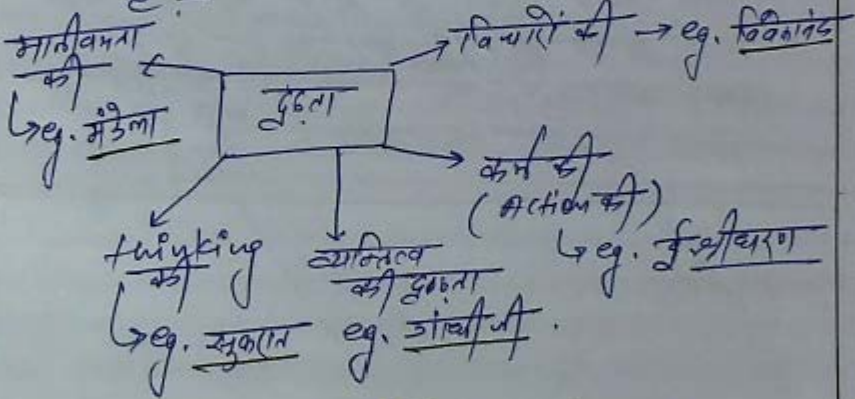 मानवीयता
की
↳ eg. मंडेला
विचारों की → eg. विवेकानंद
दृढ़ता
कर्म की
(Action की)
↳ eg. ई श्रीधरण
thinking
की
↳ eg. सुकरात
व्यक्तित्व
की दृढ़ता
eg. गांधी जी.